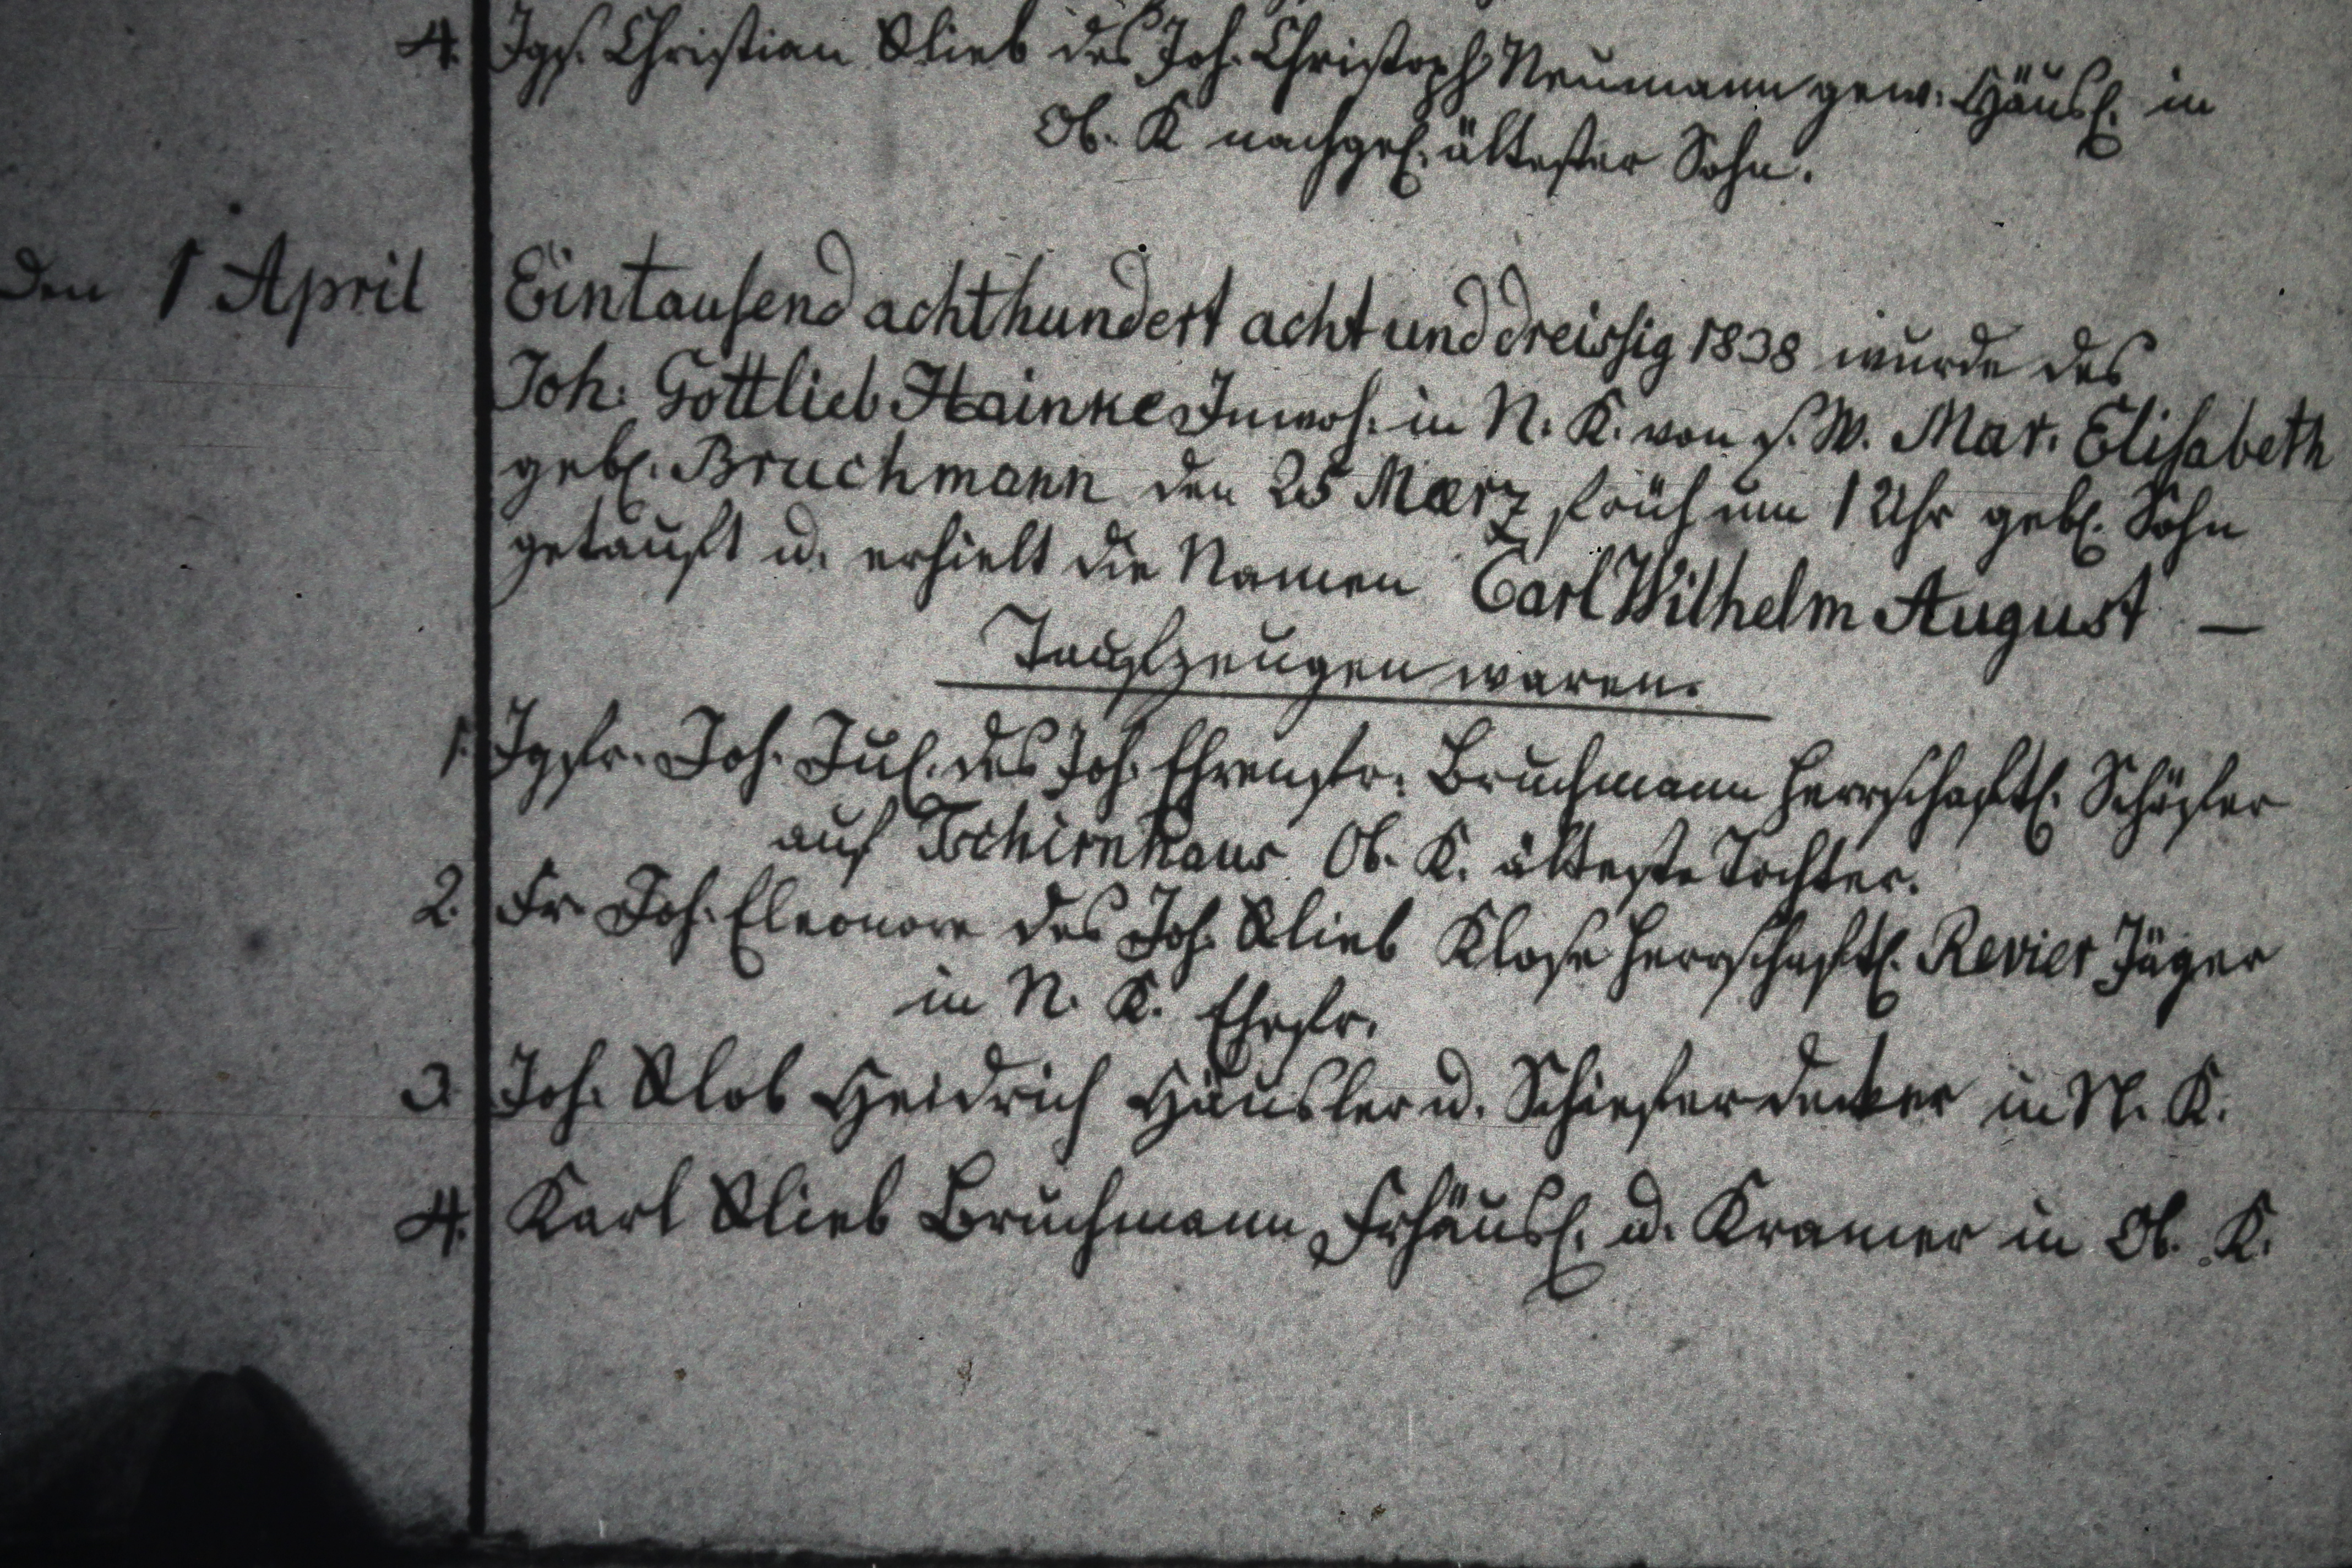 4. Jgs. Christian Glieb des Joh. Christoph Neumann gew. Häusl. in
Ob. K nachgel. ältester Sohn.
den 1 April Eintausend achthundert acht und dreissig 1838 wurde des
Joh. Gottlieb Hainke Inwoh. in N. K. von s. W. Mar. Elisabeth
gebl. Bruchmann den 25 Maerz früh um 1 Uhr gebl. Sohn
getauft u. erhielt die Namen Carl Wilhelm August —
Taufzeugen waren.
1. Jgfr. Joh. Jul. des Joh. Ehrenfr. Bruchmann herrschaftl. Schäfer
auf Tschirnhaus Ob. K. älteste Tochter.
2. Fr. Joh. Eleonore des Joh. Glieb Klose herrschaftl. Revier Jäger
in N. K. Ehefr.
3. Joh. Glob Heidrich Häusler u. Schieferdecker in N. K.
4. Karl Glieb Bruchmann Frhäusl. u. Kramer in Ob. K.